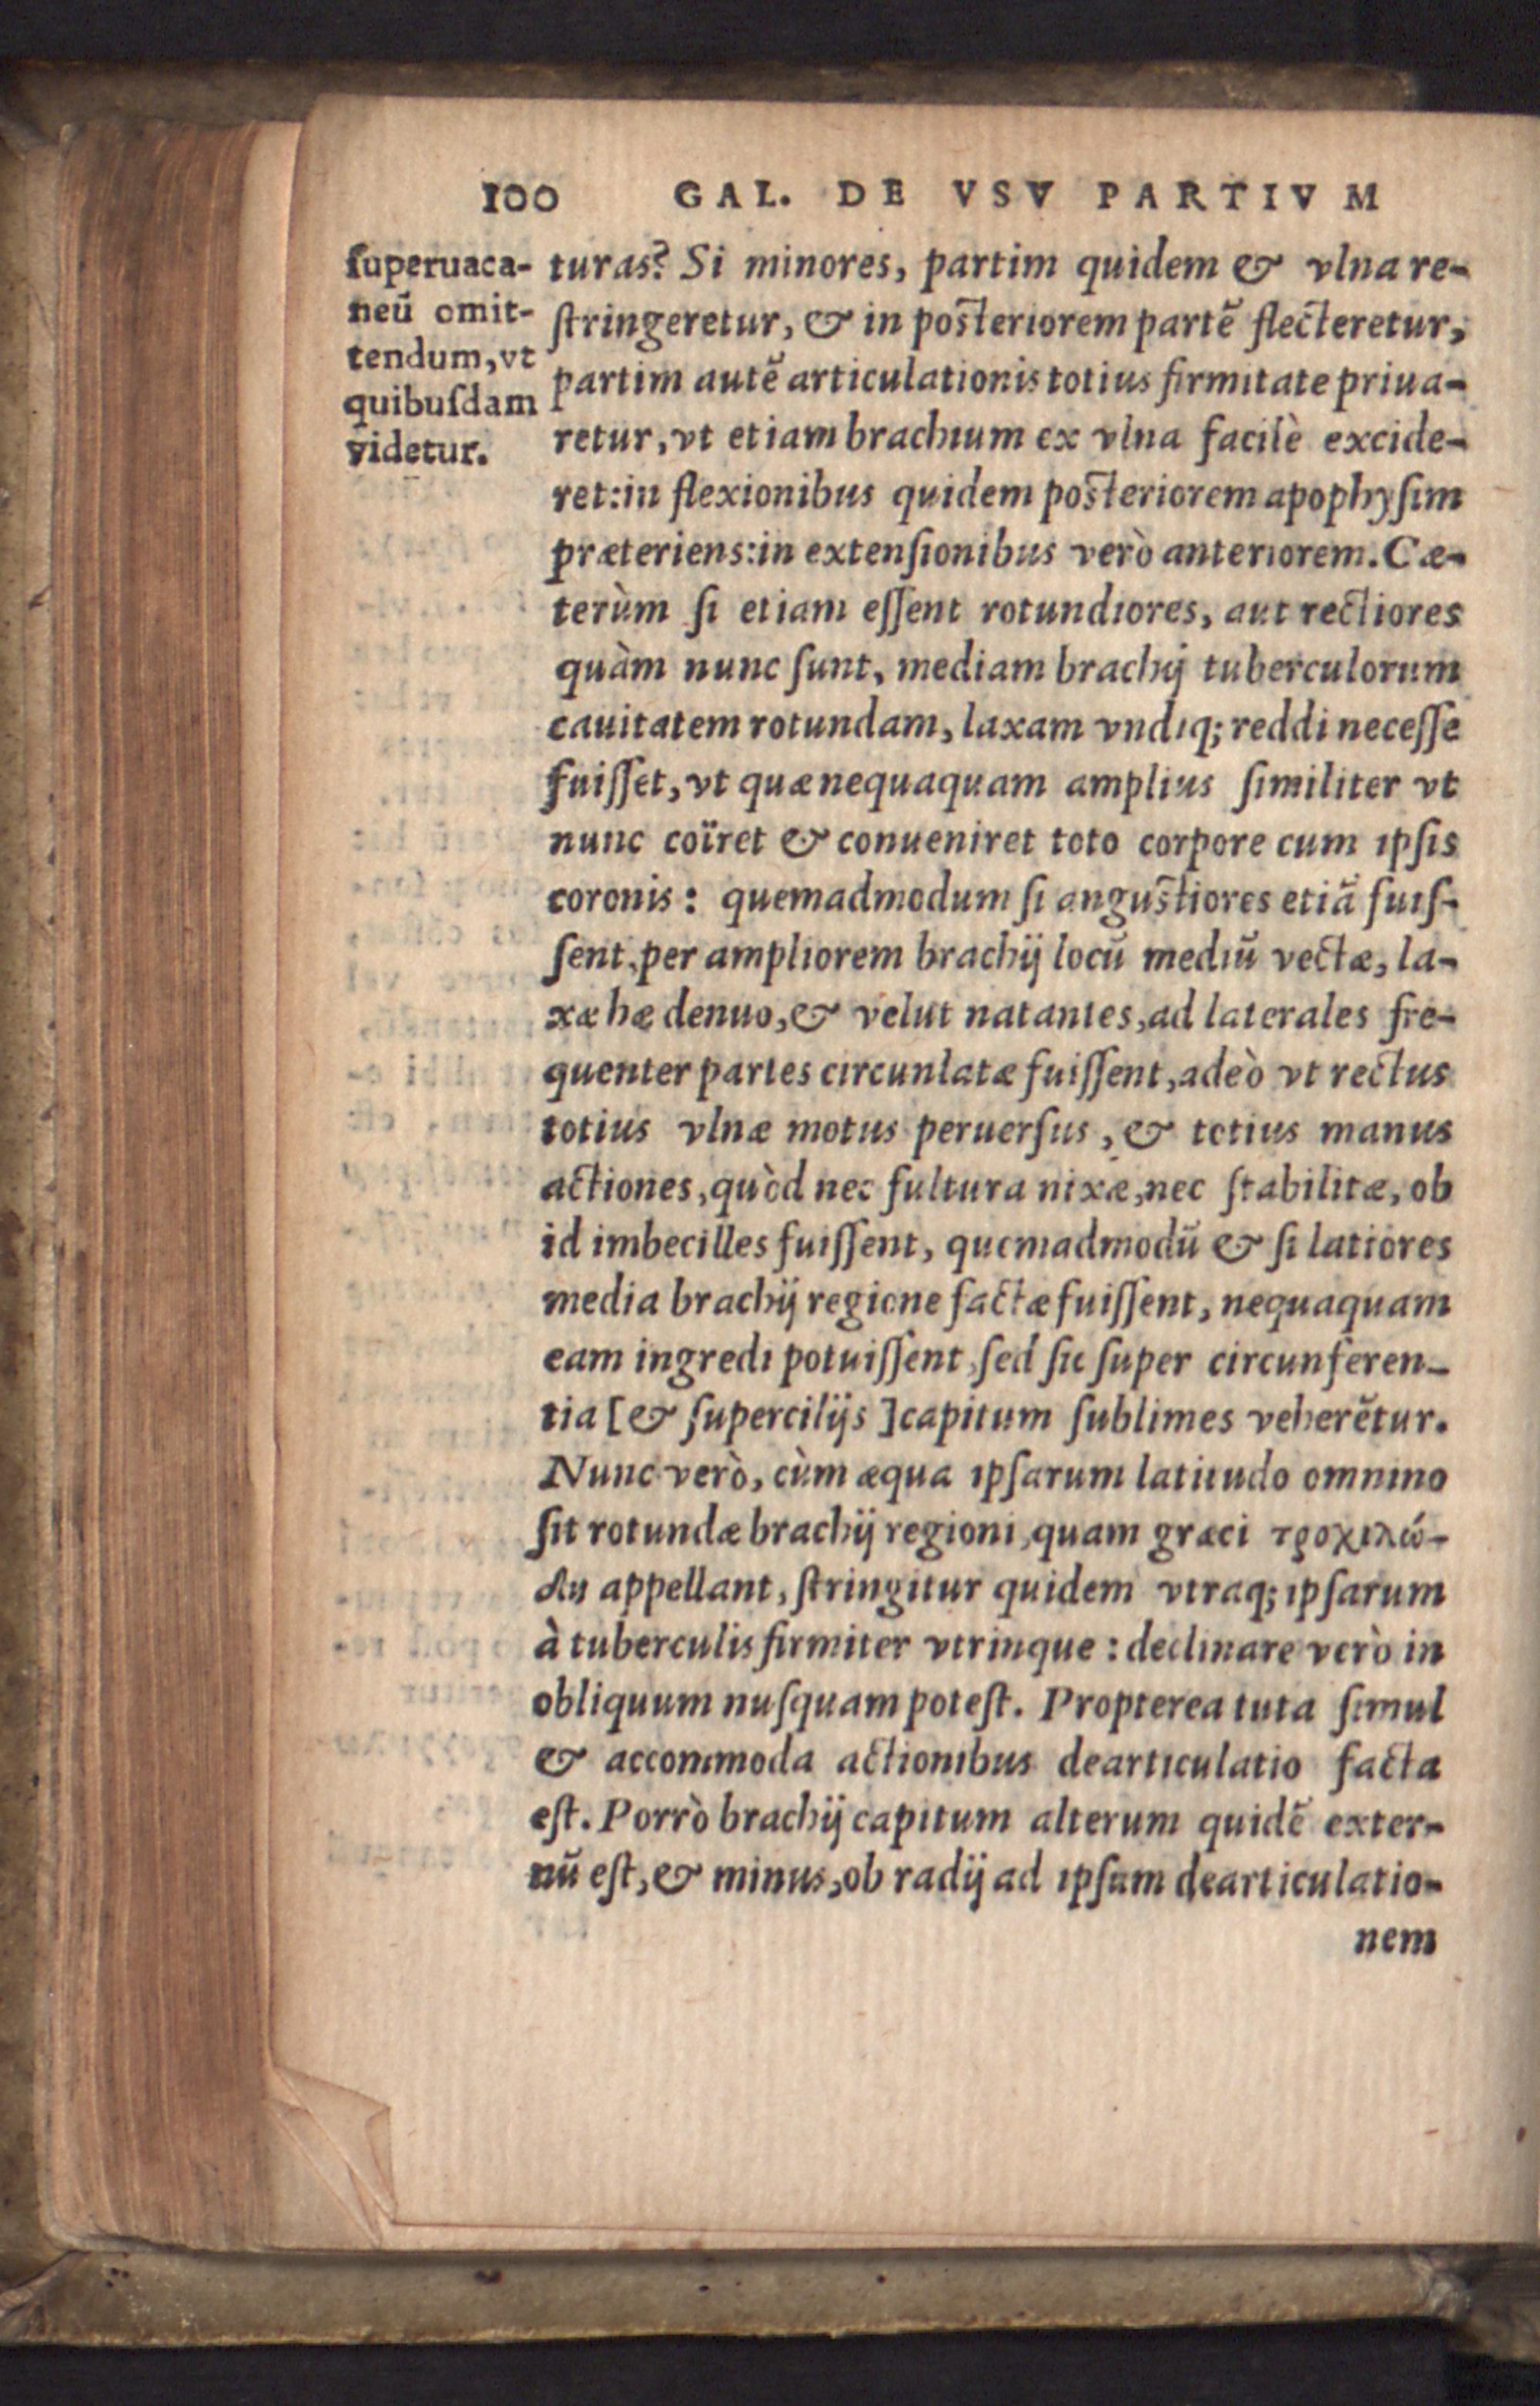 100 GAL. DE VSV PARTIVM
ſuperuaca-
neū omit-
tendum, vt
quibuſdam
videtur.
turas? Si minores, partim quidem & vlna re-
ſtringeretur, & in posteriorem partē flecteretur,
partim autē articulationis totius firmitate priua-
retur, vt etiam brachium ex vlna facilè excide-
ret: in flexionibus quidem posteriorem apophyſim
præteriens: in extenſionibus verò anteriorem. Cæ-
terùm ſi etiam eſſent rotundiores, aut rectiores
quàm nunc ſunt, mediam brachij tuberculorum
cauitatem rotundam, laxam vndiq; reddi neceſſe
fuiſſet, vt quæ nequaquam amplius ſimiliter vt
nunc coïret & conueniret toto corpore cum ipſis
coronis: quemadmodum ſi angustiores etiā fuiſ-
ſent, per ampliorem brachij locū mediū vectæ, la-
xæ hæ denuo, & velut natantes, ad laterales fre-
quenter partes circunlatæ fuiſſent, adeò vt rectus
totius vlnæ motus peruerſus, & totius manus
actiones, quòd nec fultura nixæ, nec ſtabilitæ, ob
id imbecilles fuiſſent, quemadmodū & ſi latiores
media brachij regione factæ fuiſſent, nequaquam
eam ingredi potuiſſent, ſed ſic ſuper circunferen-
tia [& ſupercilijs] capitum ſublimes veherētur.
Nunc verò, cùm æqua ipſarum latitudo omnino
ſit rotundæ brachij regioni, quam græci τροχιλώ-
δη appellant, ſtringitur quidem vtraq; ipſarum
à tuberculis firmiter vtrinque: declinare verò in
obliquum nuſquam poteſt. Propterea tuta ſimul
& accommoda actionibus dearticulatio facta
eſt. Porrò brachij capitum alterum quidē exter-
nū eſt, & minus, ob radij ad ipſum dearticulatio-
nem